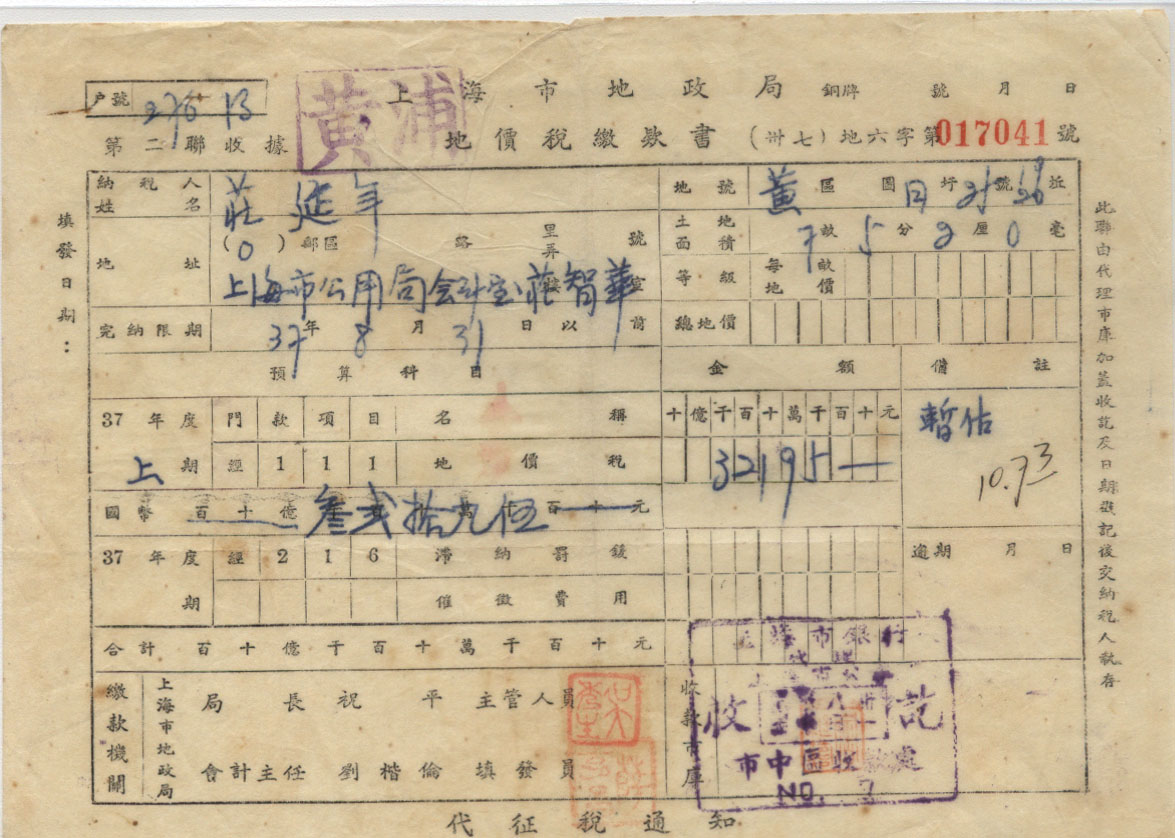 上海市地政局 銅牌 號 月 日
戶號 276 13
黃浦
第二聯收據 地價稅繳款書 (卅七)地六字第017041號
納稅人姓名 莊延年 地號 黃區 圖 日 圩 號 坵
(0)郵區 路 里弄 號 土地面積 7畝5分2厘0毫
地址 上海市公用局会计室莊智華 等級 每畝地價
完納限期 37年8月31日以前 總地價
預算科目 金額 備註
37年度 門 款 項 目 名稱 十億千百十萬千百十元 暫估
上期 經 1 1 1 地價稅 32195— 10.73
國幣 百十億 叁 弍 拾 九 伍 百十元
37年度 經 2 1 6 滯納罰鍰 逾期 月 日
期 催徵費用
合計 百十億千百十萬千百十元
繳款機關 上海市地政局 局長 祝平 主管人員 收款市庫
會計主任 劉楷倫 填發員
上海市銀行
收訖
市中區收款處
NO. 7
代征稅通知
填發日期:
此聯由代理市庫加蓋收訖及日期戳記後交納稅人執存